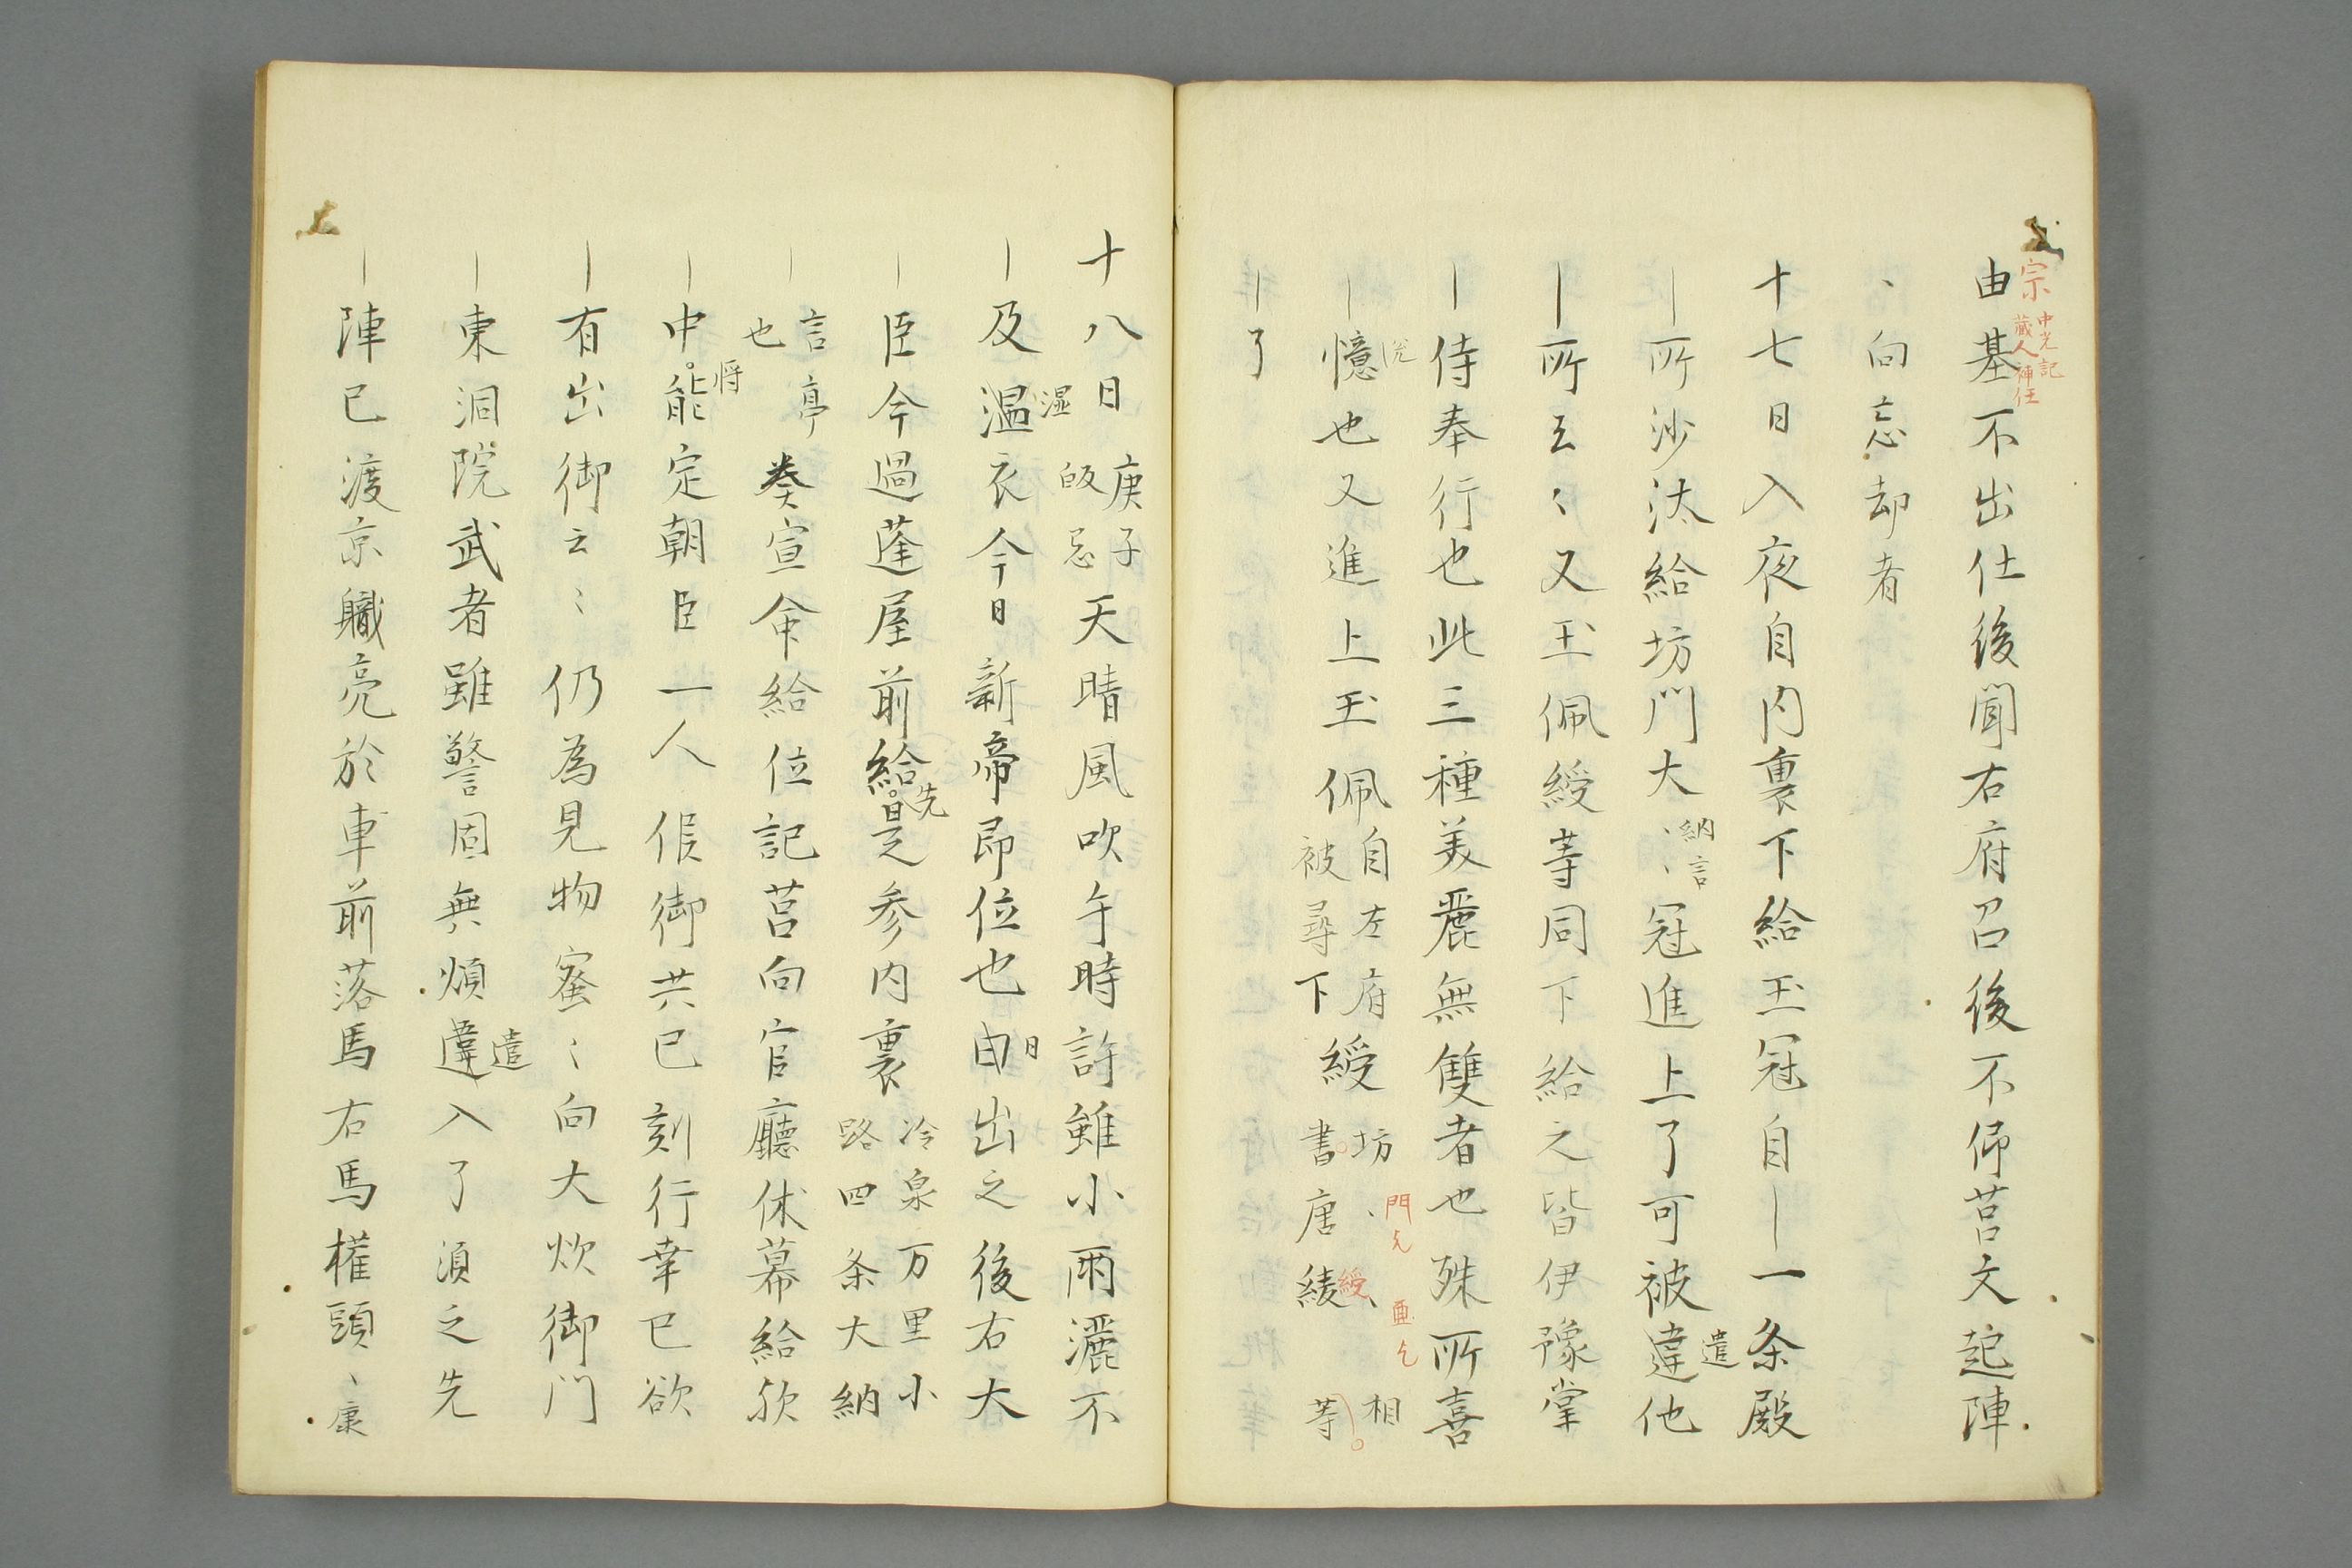 宗 中光記
蔵人神任
由基不出仕後聞右府召後不仰莒文起陣
、向忘却者
十七日入夜自内裏下給玉冠自―一条殿
―所沙汰給坊門大納言、、冠進上了可被違他
遣
―所云〻又玉佩綬等同下給之皆伊豫掌
―侍奉行也此三種美麗無雙者也殊所喜
―憶也又進上玉佩自左府被尋下綬坊、書唐綾、相等
悦
門
綬
―了
十八日庚子皈忌天晴風吹午時許雖小雨灑不
―及温衣今日新帝即位也由出之後右大
湿
日
―臣今過蓬屋前給是参内裏冷泉万里小路四条大納
先
―言亭也 奏宣命給位記莒向官廳休幕給欤
―中能定朝臣一人候御共已刻行幸已欲
将
―有出御云〻仍為見物蜜〻向大炊御門
―東洞院武者雖警固無煩違入了須之先
遣
―陣已渡京職亮於車前落馬右馬権頭、康